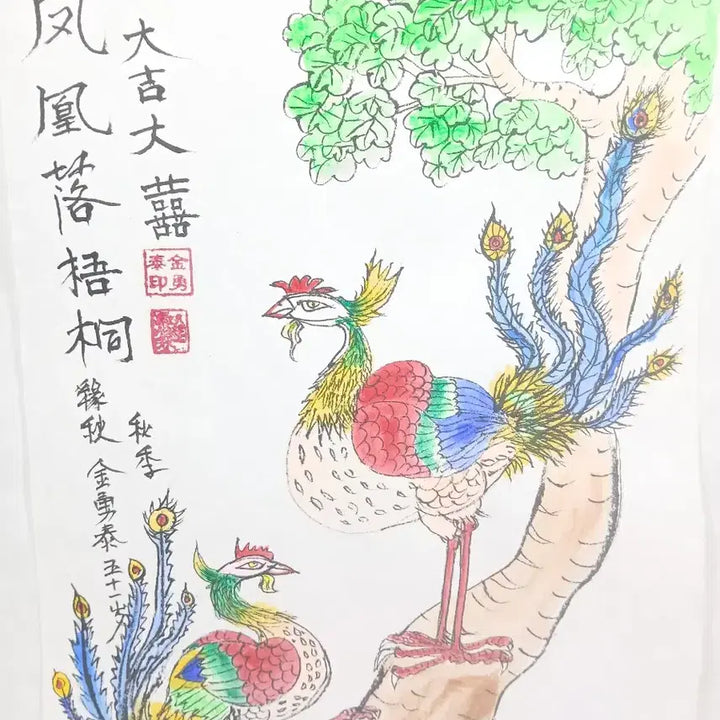 凤凰落梧桐
大吉大囍
金勇泰印
秋季
金勇泰五十一岁